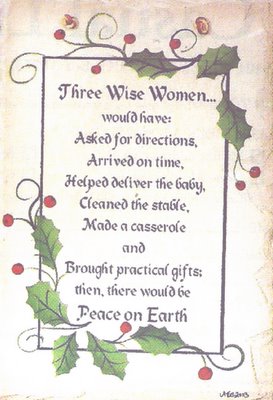 Three Wise Women...
would have:
Asked for directions,
Arrived on time,
Helped deliver the baby,
Cleaned the stable,
Made a casserole
and
Brought practical gifts;
then, there would be
Peace on Earth